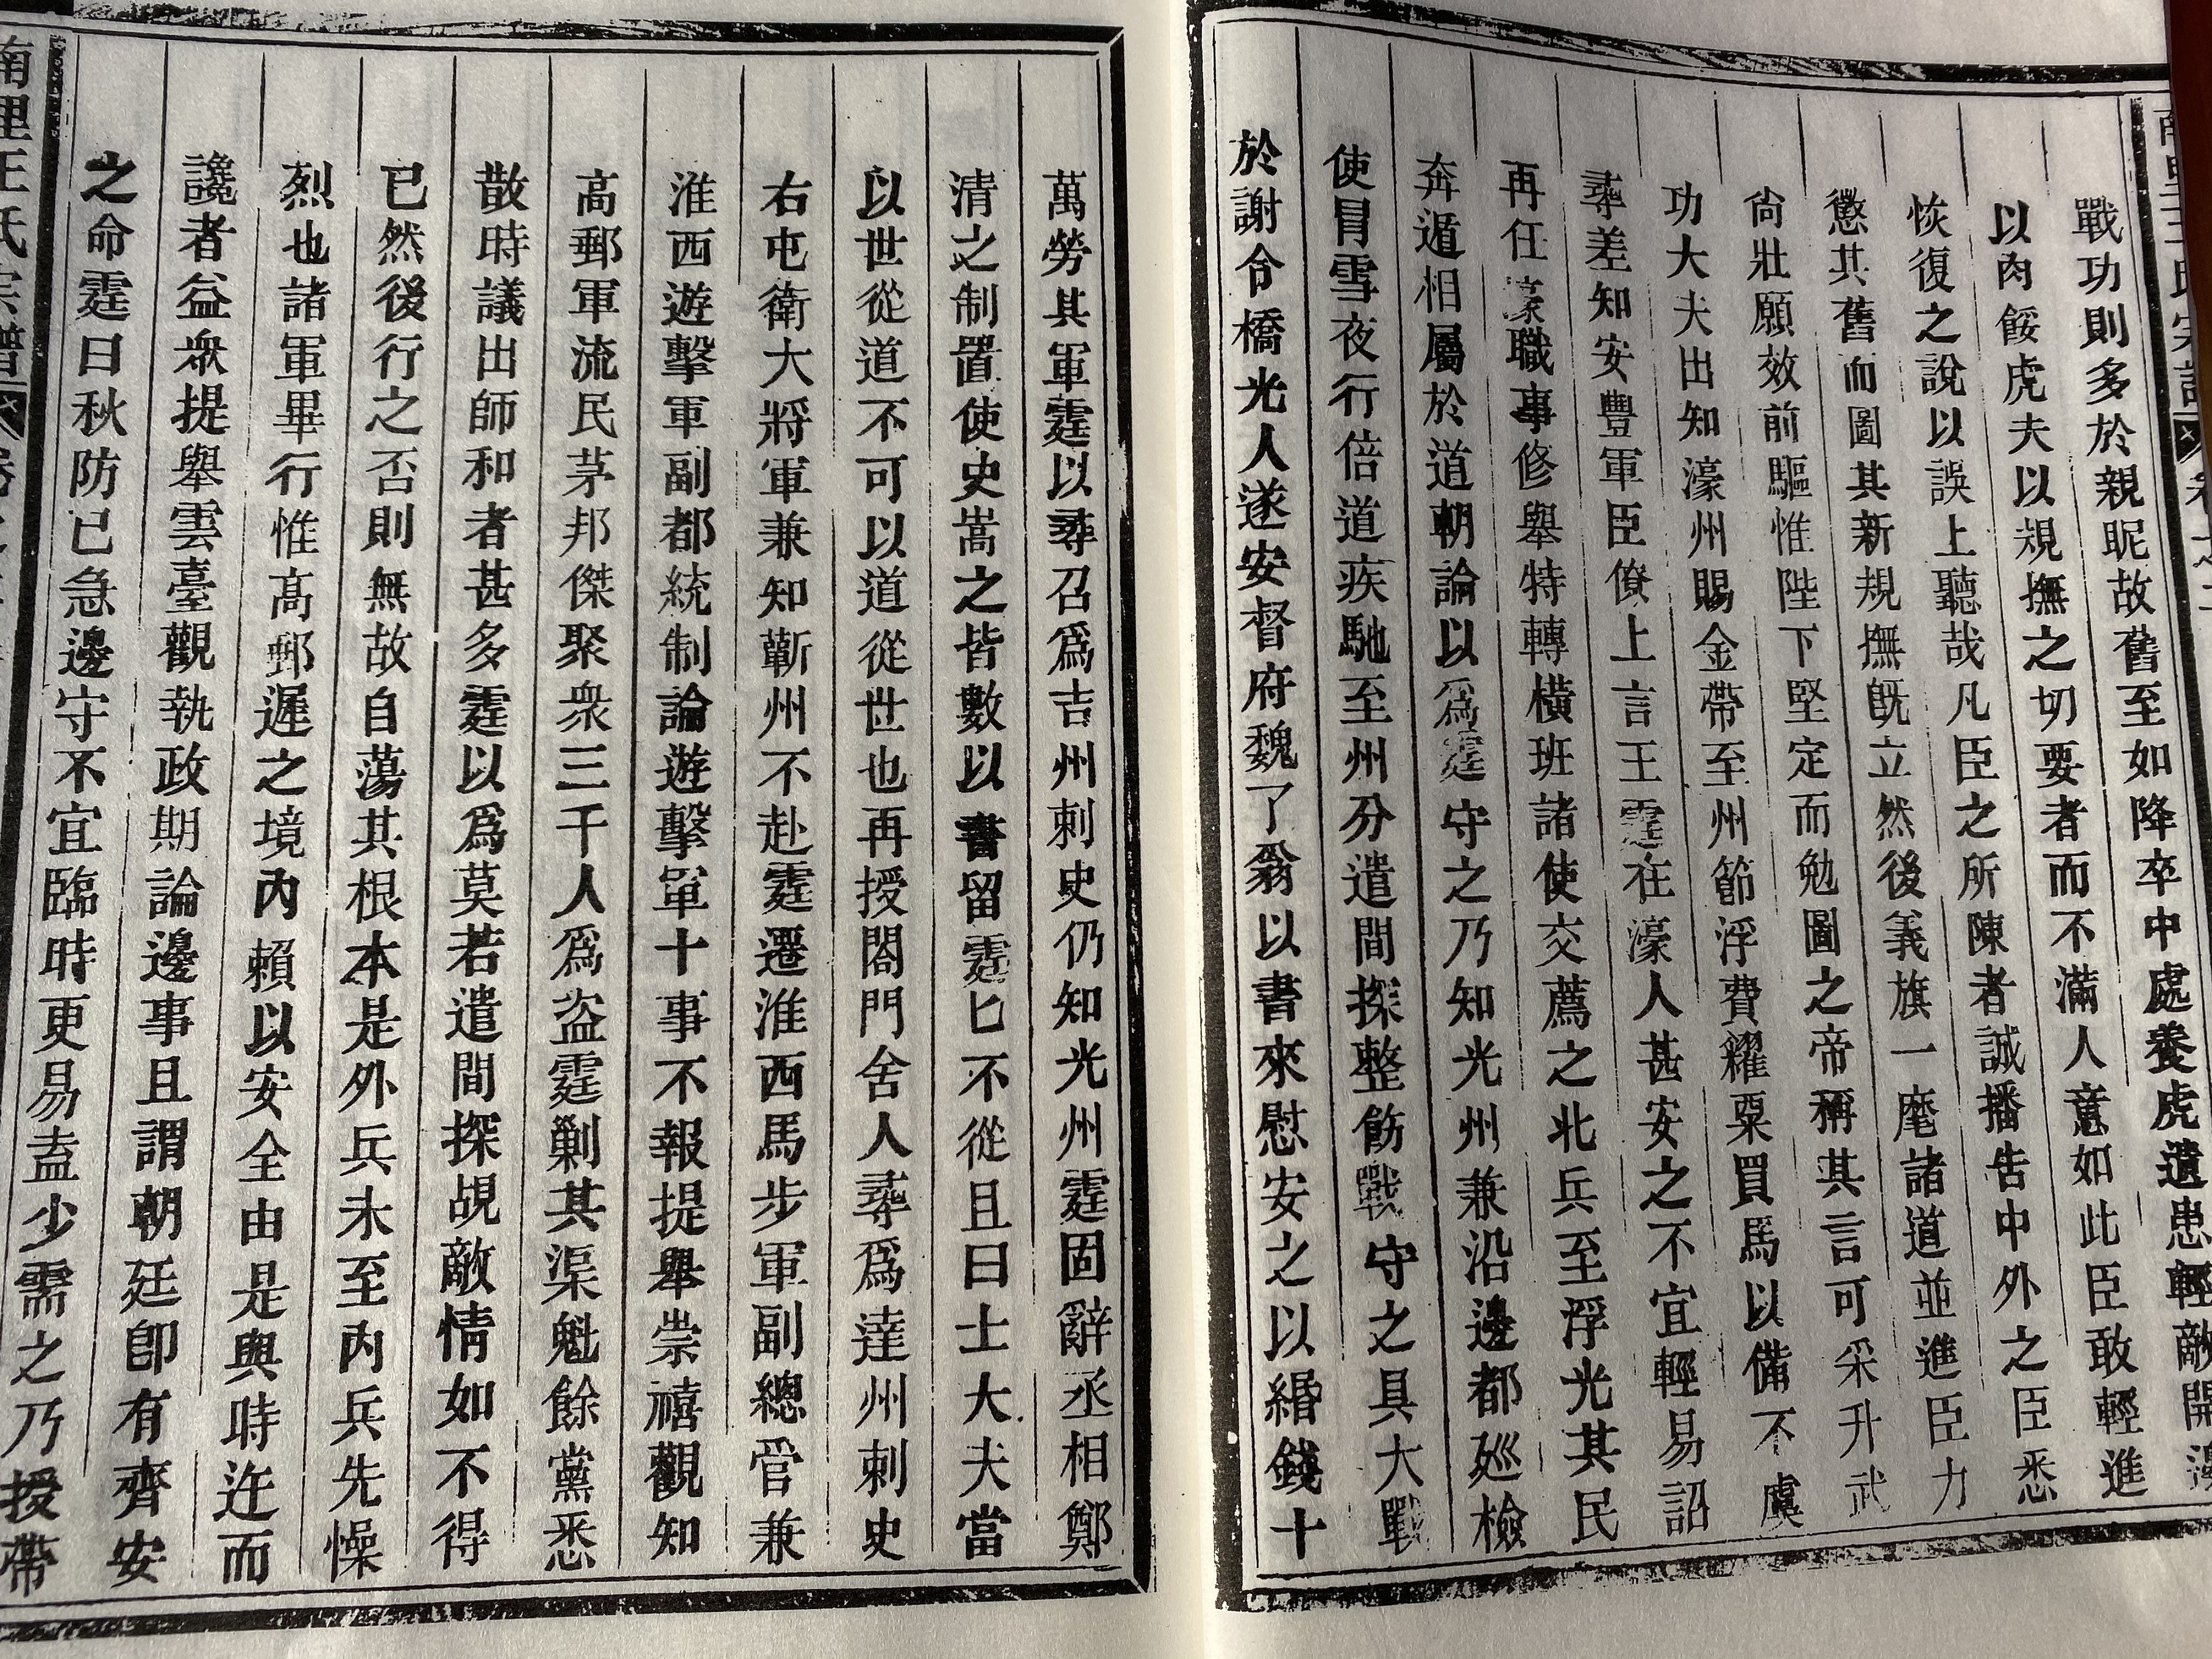 戰功則多於親昵故舊至如降卒中處養虎遺患輕敵開邊
以肉餒虎夫以規撫之切要者而不滿人意如此臣敢輕進
恢復之說以誤上聽哉凡臣之所陳者誠播告中外之臣悉
懲其舊而圖其新規撫旣立然後義旗一麾諸道並進臣力
尙壯願效前驅惟陛下堅定而勉圖之帝稱其言可采升武
功大夫出知濠州賜金帶至州節浮費糴粟買馬以備不虞
尋差知安豐軍臣僚上言王霆在濠人甚安之不宜輕易詔
再任濠職事修舉特轉橫班諸使交薦之北兵至浮光其民
奔遁相屬於道朝論以爲霆守之乃知光州兼沿邊都廵檢
使冒雪夜行倍道疾馳至州分遣間探整飭戰守之具大戰
於謝令橋光人遂安督府魏了翁以書來慰安之以緡錢十
萬勞其軍霆以尋召爲吉州刺史仍知光州霆固辭丞相鄭
清之制置使史嵩之皆數以書留霆匕不從且曰士大夫當
以世從道不可以道從世也再授閤門舍人尋爲達州刺史
右屯衛大將軍兼知蘄州不赴霆遷淮西馬步軍副總管兼
淮西遊擊軍副都統制論遊擊軍十事不報提舉崇禧觀知
高郵軍流民茅邦傑聚衆三千人爲盗霆剿其渠魁餘黨悉
散時議出師和者甚多霆以爲莫若遣間探覘敵情如不得
已然後行之否則無故自蕩其根本是外兵未至內兵先懆
烈也諸軍畢行惟高郵遲之境內賴以安全由是與時迕而
讒者益衆提舉雲臺觀執政期論邊事且謂朝廷卽有齊安
之命霆曰秋防已急邊守不宜臨時更易盍少需之乃授帶
南里王氏宗譜